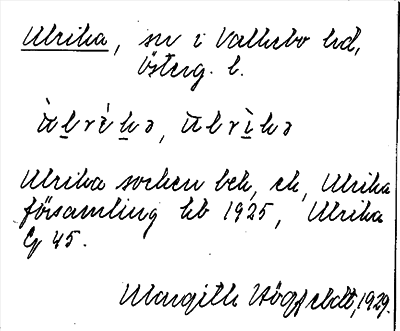 Ulrika, sn i Valkebo hd,
Österg. l.
Ulrika socken beh, ek, Ulrika
församling kb 1925, Ulrika
Gj 45.
Margith Högfeldt, 1929.